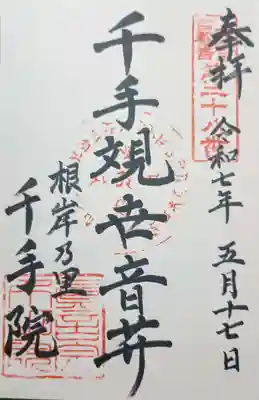 奉拝 令和七年 五月十七日
千手観世音菩
根岸乃里
千手院